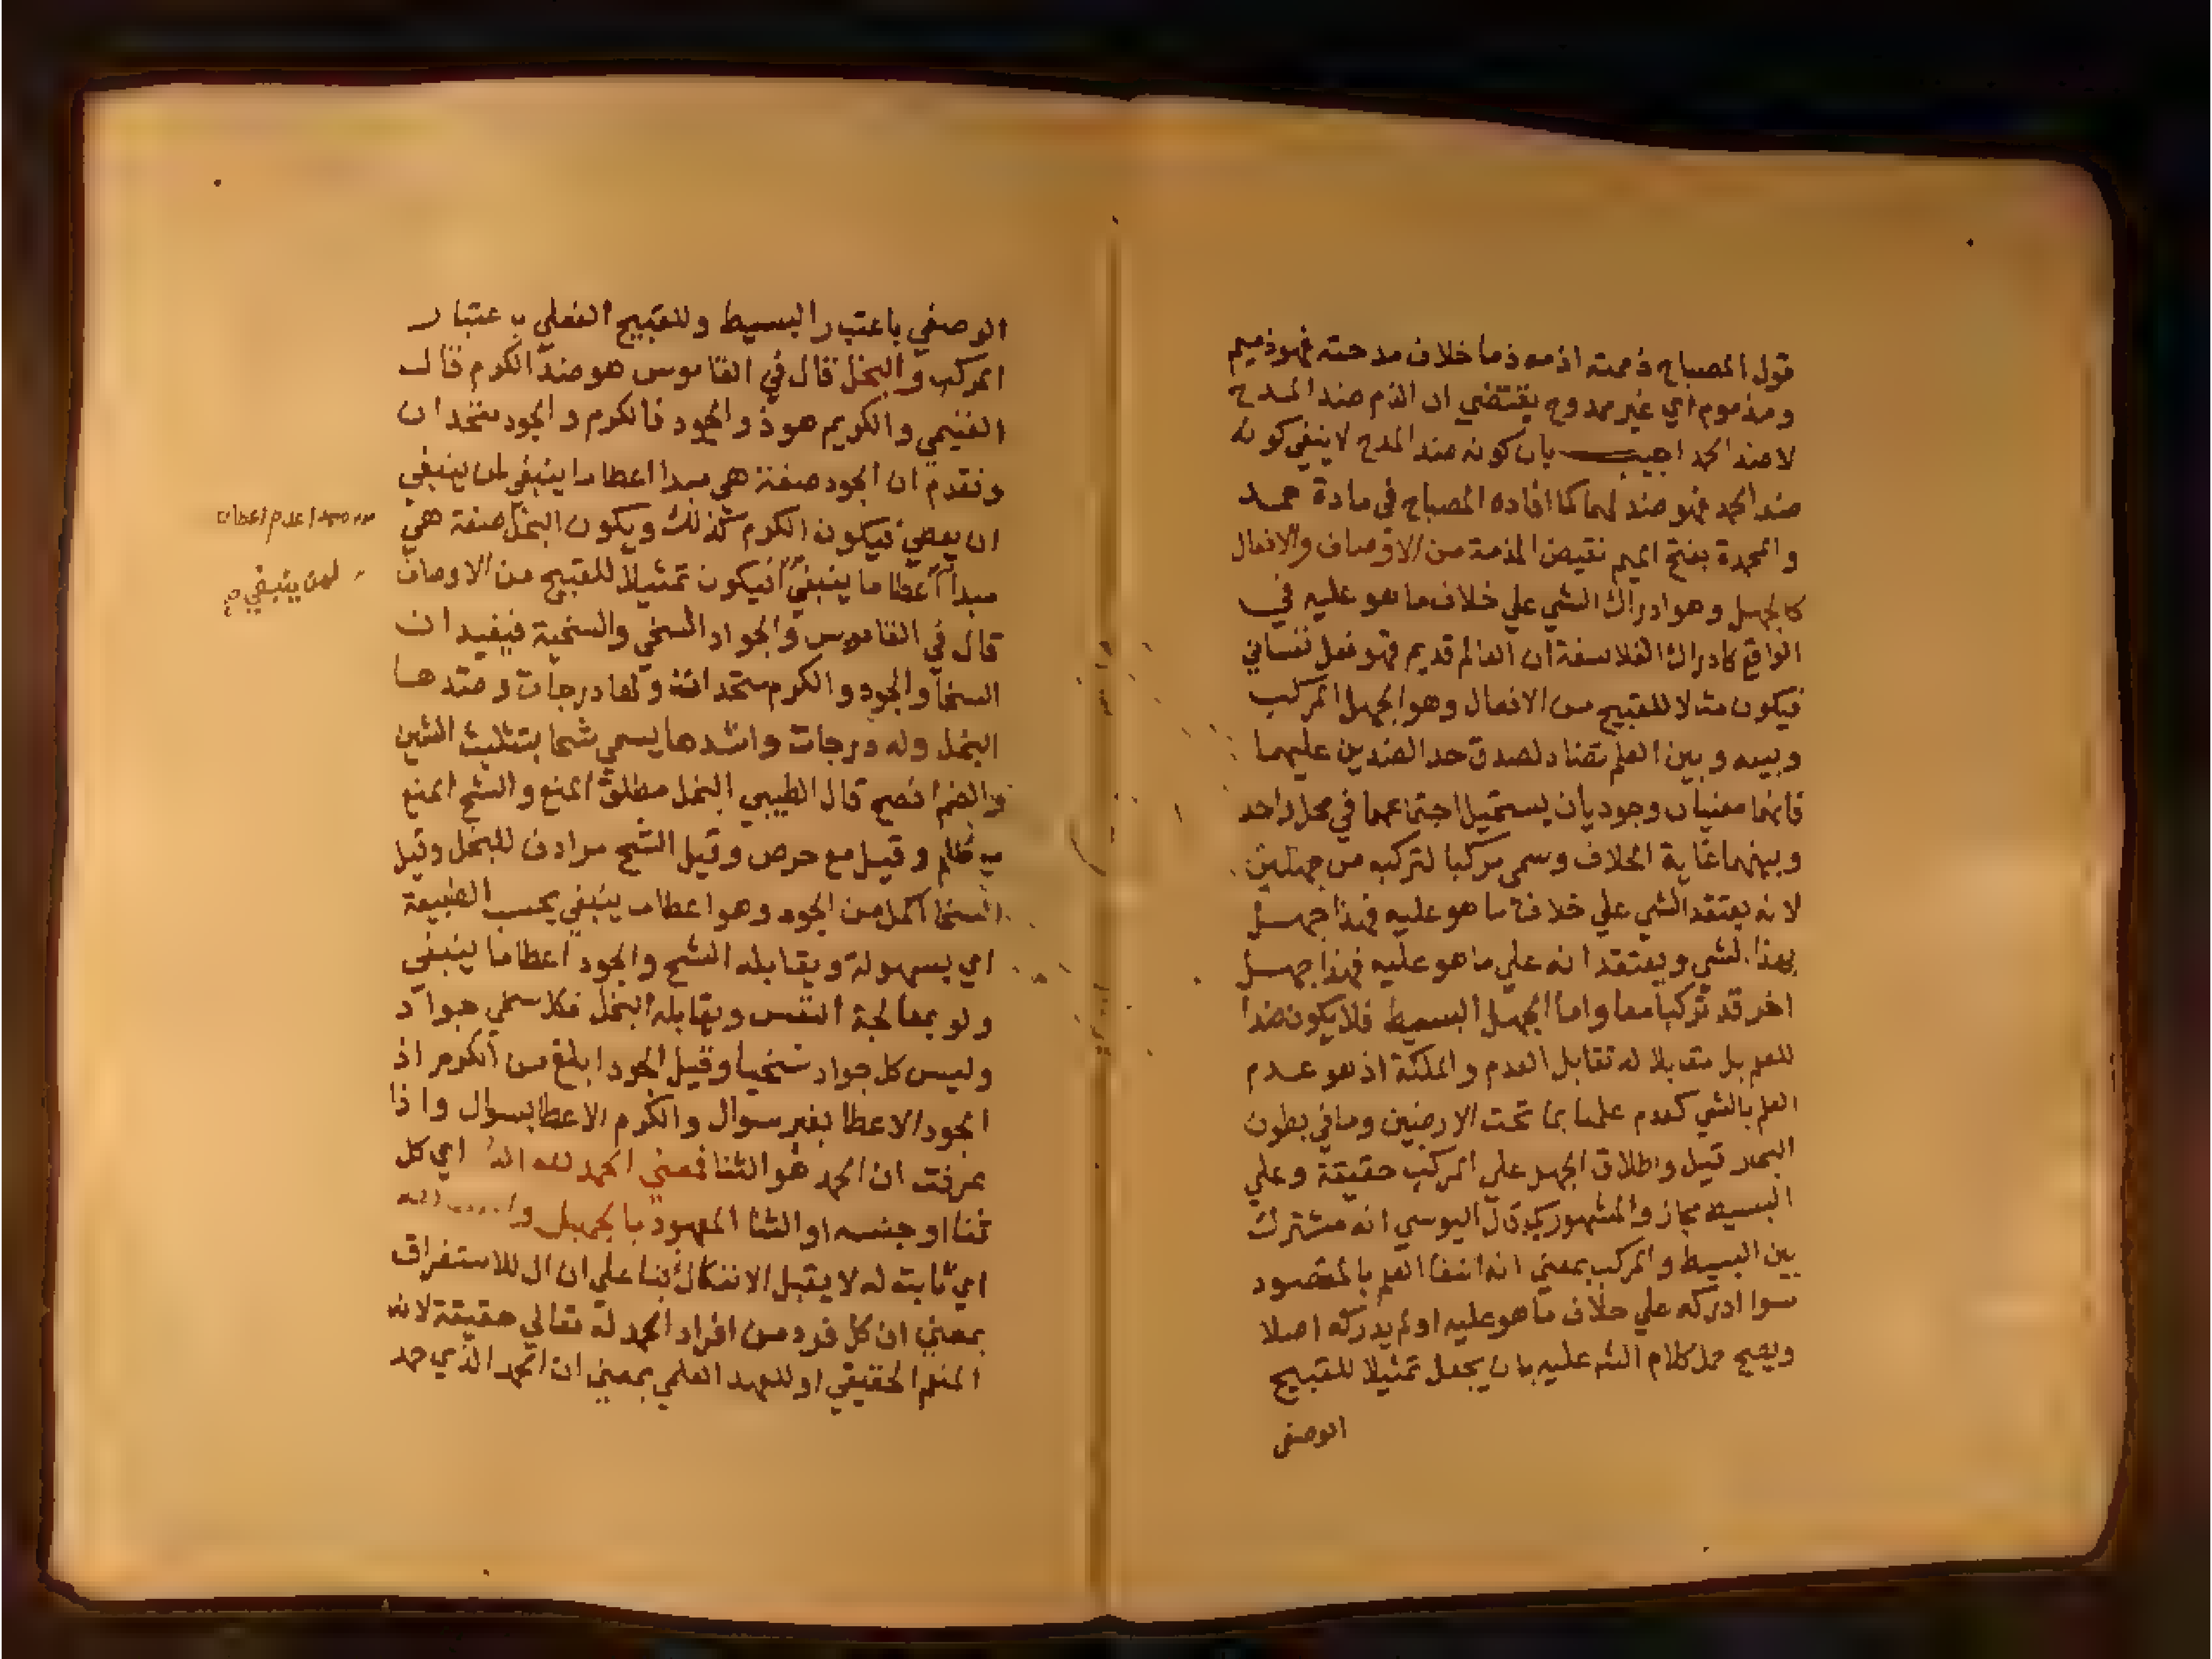 قول المصباح ذممته اذمه ذما خلاف مدحته فهو ذميم
ومذموم اي غير ممدوح يقتضي ان الذم ضد المدح
لا ضد الحمد اجيب بان كونه ضد المدح لا ينفي كونه
ضد الحمد فهو ضد لهما كما افاده المصباح في مادة حمد
والمحمدة بفتح الميم نقيض المذمة من الاوصاف والافعال
كالجهل وهو ادراك الشي علي خلاف ما هو عليه في
الواقع كادراك الفلاسفة ان العالم قديم فهو فعل نفساني
فيكون مثالا للقبيح من الافعال وهو الجهل المركب
وبينه وبين العلم تضاد لصدق حد الضدين عليهما
فانهما معنيان وجوديان يستحيل اجتماعهما في محل واحد
وبينهما غاية الخلاف وسمي مركبا لتركبه من جهلين
لانه يعتقد الشي علي خلاف ما هو عليه فهذا جهل
بهذا الشي ويعتقد انه علي ما هو عليه فهذا جهل
اخر قد تركبا معا واما الجهل البسيط فلا يكون ضدا
للعلم بل مقابلا له تقابل العدم والملكة اذ هو عدم
العلم بالشي كعدم علمنا بما تحت الارضين وما في بطون
البحار قيل واطلاق الجهل علي المركب حقيقة وعلي
البسيط مجاز والمشهور كما قال اليوسي انه مشترك
بين البسيط والمركب بمعني انه انتفا العلم بالمقصود
سوا ادركه علي خلاف ما هو عليه او لم يدركه اصلا
ويصح حمل كلام الشه عليه بان يجعل تمثيلا للقبيح
الوصفي
الوصفي باعتبار البسيط وللقبيح الفعلي باعتبار
المركب والبخل قال في القاموس هو ضد الكرم قال
الغنيمي والكريم هو ذو الجود فالكرم والجود متحدان
وتقدم ان الجود صفة هي مبدا اعطا ما ينبغي لمن ينبغي
ان يعطي فيكون الكرم كذلك ويكون البخل صفة هي
مبدا اعطا ما ينبغي فيكون تمثيلا للقبيح من الاوصاف
قال في القاموس والجواد السخي والسخية فيفيد ان
السخا والجود والكرم متحدانة ولها درجات وضدها
البخل وله درجات واشدها يسمي شحا بتثليث الشين
والضم افصح قال الطيبي البخل مطلق المنع والشح المنع
مع ظلم وقيل مع حرص وقيل الشح مرادف للبخل وقيل
السخا اكمل من الجود وهو اعطا ما ينبغي بحسب الطبيعة
اي بسهولة ويقابله الشح والجود اعطا ما ينبغي
ولو بمعالجة النفس ويقابله البخل فكل سخي جواد
وليس كل جواد سخيا وقيل الجود ابلغ من الكرم اذ
الجود الاعطا بغير سوال والكرم الاعطا بسوال واذا
عرفت ان الحمد هو الثنا فمعني الحمد لله الخ اي كل
ثنا او جنسه او الثنا المعهود بالجميل
اي ثابت له لا يقبل الانفكاك بنا علي ان ال للاستغراق
بمعني ان كل فرد من افراد الحمد له تعالي حقيقة لانه
المنعم الحقيقي او للعهد العلمي بمعني ان الحمد الذي حمد
عدم اعطا
لمن ينبغي صح